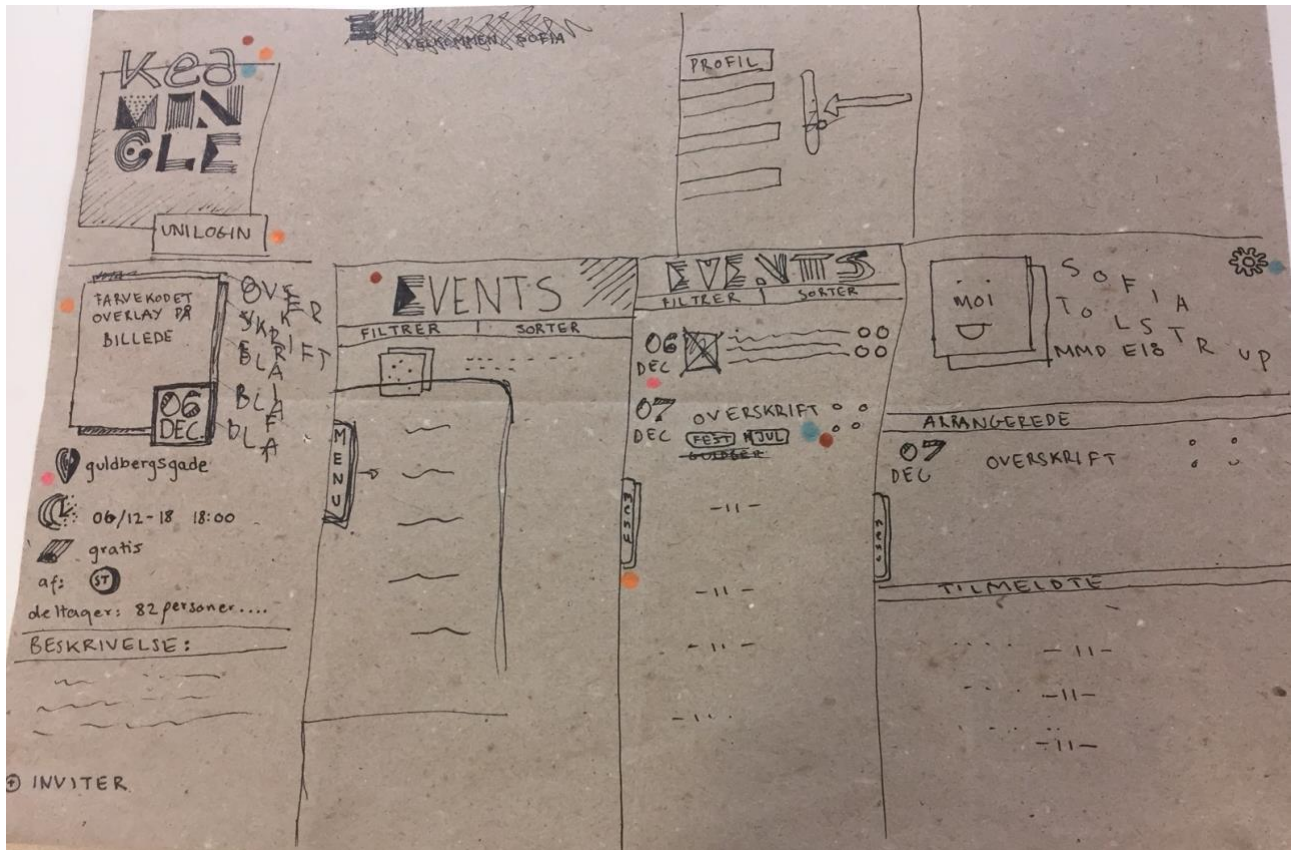 Kea
MIN
GLE
UNILOGIN
VELKOMMEN, SOFIA
PROFIL
FARVEKODET
OVERLAY PÅ
BILLEDE
OVERSKRIFT
BLA
BLA
BLA
06
DEC
guldbergsgade
06/12-18 18:00
gratis
af: ST
deltager: 82 personer....
BESKRIVELSE:
INVITER
EVENTS
FILTRER SORTER
MENU
EVENTS
FILTRER SORTER
06
DEC
07
DEC
OVERSKRIFT
FEST JUL
-11-
-11-
-11-
MOI
SOFIA
TOLSTRUP
MMD E18
ARRANGEREDE
07
DEC
OVERSKRIFT
TILMELDTE
-11-
-11-
-11-